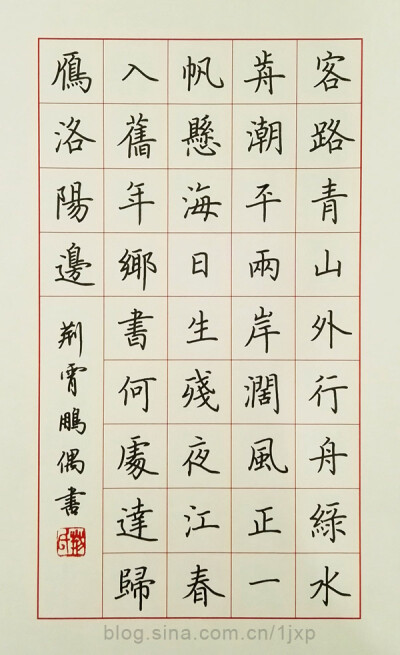 客路青山外行舟綠水
歬潮平兩岸濶風正一
帆懸海日生殘夜江春
入舊年鄉書何處達歸
鴈洛陽邊
荆霄鵬偶書
blog.sina.com.cn/1jxp